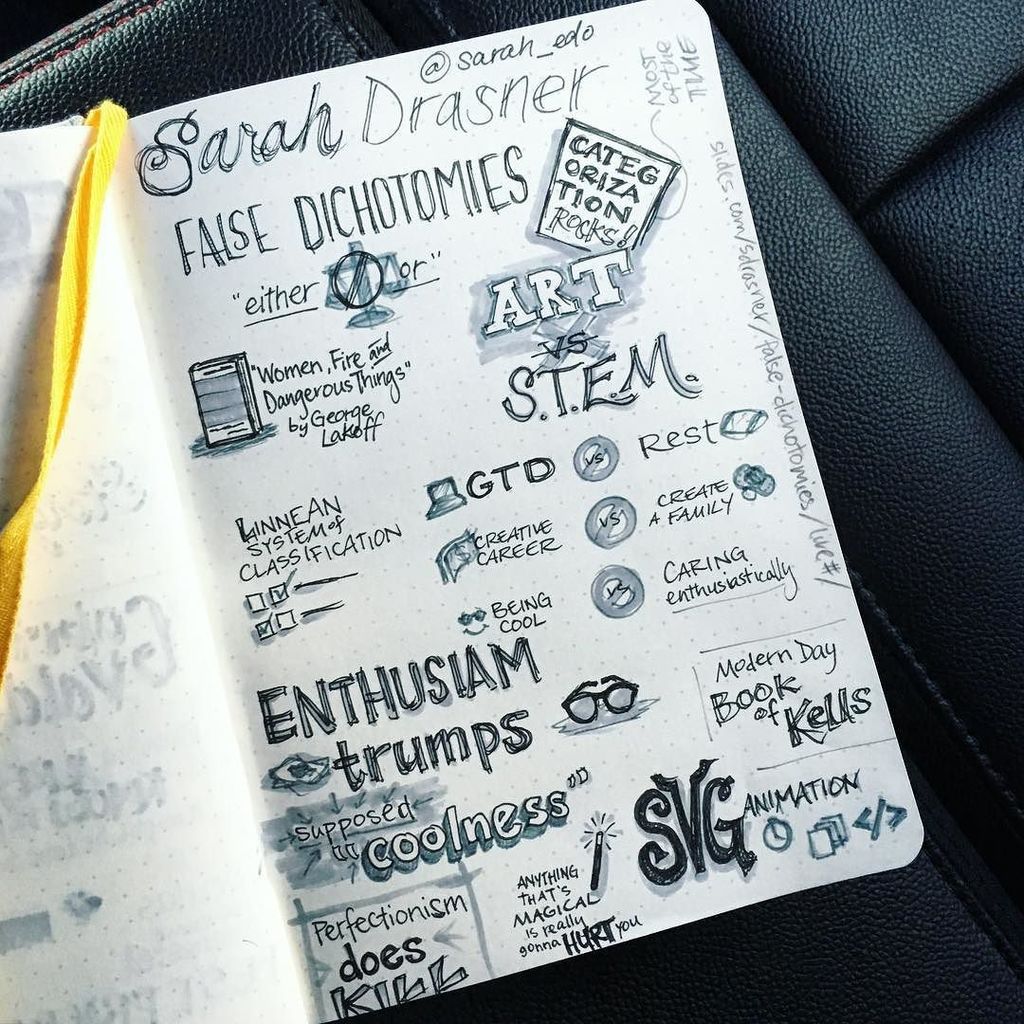 @sarah_edo
Sarah Drasner
MOST
of the
TIME
FALSE DICHOTOMIES
CATEG
ORIZA
TION
ROCKS!!
"either or"
ART
vs
S.T.E.M.
"Women, Fire and
Dangerous Things"
by George
Lakoff
slides.com/sdrasner/false-dichotomies/live#/
GTD VS REST
LINNEAN
SYSTEM of
CLASSIFICATION
CREATIVE
CAREER
VS
CREATE
A FAMILY
BEING
COOL
VS
CARING
enthusiastically
ENTHUSIAM
trumps
supposed
"coolness"
Modern Day
BOOK
of Kells
SVG ANIMATION
</>
ANYTHING
THAT'S
MAGICAL
is really
gonna HURT you
Perfectionism
does
KILL